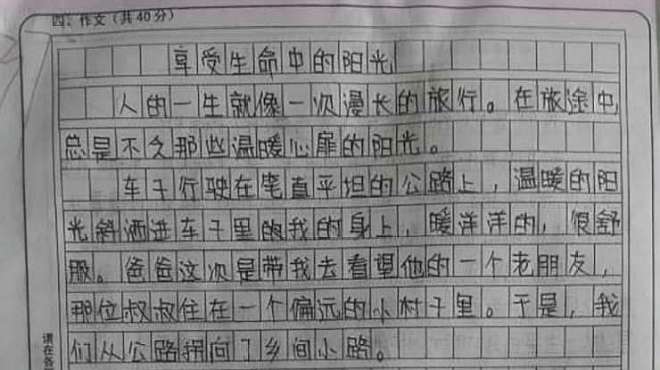 四、作文（共40分）
享受生命中的阳光
人的一生就像一次漫长的旅行。在旅途中
总是不久那些温暖心扉的阳光。
车子行驶在笔直平坦的公路上，温暖的阳
光斜洒进车子里的我的身上，暖洋洋的，很舒
服。爸爸这次是带我去看望他的一个老朋友，
那位叔叔住在一个偏远的小村子里。于是，我
们从公路拐向了乡间小路。
请在各